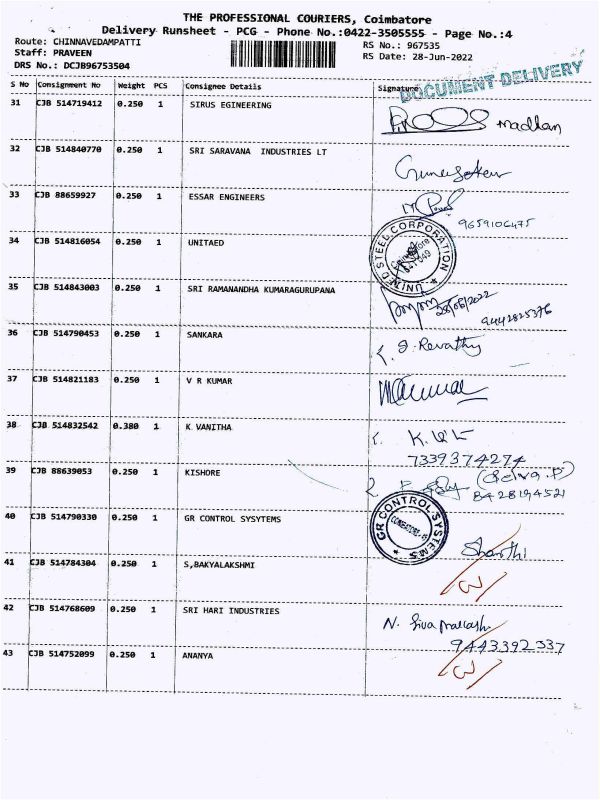 THE PROFESSIONAL COURIERS, Coimbatore
Delivery Runsheet - PCG - Phone No.:0422-3505555 - Page No.:4
Route: CHINNAVEDAMPATTI
Staff: PRAVEEN
DRS No.: DCJB96753504
RS No.: 967535
RS Date: 28-Jun-2022
DOCUMENT DELIVERY
S No Consignment No Weight PCS Consignee Details Signature
31 CJB 514719412 0.250 1 SIRUS EGINEERING Madhan
32 CJB 514840770 0.250 1 SRI SARAVANA INDUSTRIES LT
33 CJB 88659927 0.250 1 ESSAR ENGINEERS
9659106475
34 CJB 514816054 0.250 1 UNITAED
UNITED STEEL CORPORATION
Coimbatore
35 CJB 514843003 0.250 1 SRI RAMANANDHA KUMARAGURUPANA
28/06/2022
9442825376
36 CJB 514790453 0.250 1 SANKARA
J. Revathy
37 CJB 514821183 0.250 1 V R KUMAR
38 CJB 514832542 0.380 1 K VANITHA
7339374274
39 CJB 88639053 0.250 1 KISHORE
(Selva.P)
8428194521
40 CJB 514790330 0.250 1 GR CONTROL SYSYTEMS
GR CONTROL SYSTEMS
Shanthi
41 CJB 514784304 0.250 1 S,BAKYALAKSHMI
42 CJB 514768609 0.250 1 SRI HARI INDUSTRIES
N. Siva Prakash
9443392337
43 CJB 514752099 0.250 1 ANANYA